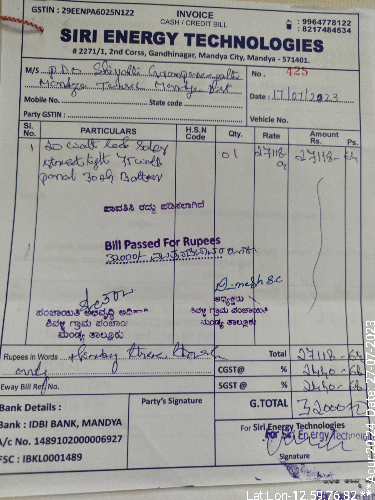 GSTIN : 29EENPA6025N1Z2
INVOICE
CASH / CREDIT BILL
: 9964778122
: 8217484534
SIRI ENERGY TECHNOLOGIES
# 2271/1, 2nd Corss, Gandhinagar, Mandya City, Mandya - 571401.
M/S P.D.O Shivalli Gramapanchayathi
Mandya Taluk Mandya Dist
No. : 425
Mobile No. State code
Date : 17/07/2023
Party GSTIN :
Vehicle No.
Sl. No. PARTICULARS H.S.N Code Qty. Rate Amount Rs. Ps.
1 20 watt Led Solar 01 27118- 27118-64
Street light 75 watt
panal 30 Ah Battery
ಪಾವತಿಸಿ ರದ್ದು ಪಡಿಸಲಾಗಿದೆ
Bill Passed For Rupees
32000/-
ಪಂಚಾಯಿತಿ ಅಭಿವೃದ್ಧಿ ಅಧಿಕಾರಿ
ಶಿವಳ್ಳಿ ಗ್ರಾಮ ಪಂಚಾಯಿ
ಮಂಡ್ಯ ತಾಲ್ಲೂಕು
ಅಧ್ಯಕ್ಷರು
ಶಿವಳ್ಳಿ ಗ್ರಾಮ ಪಂಚಾಯಿತಿ
ಮಂಡ್ಯ ತಾಲ್ಲೂಕು
Rupees in Words
only
Total 27118-64
CGST@ % 2440-68
SGST @ % 2440-68
Eway Bill Reg No.
G.TOTAL 32000
Bank Details :
Party's Signature
For Siri Energy Technologies
For Siri Energy Technologies
Bank : IDBI BANK, MANDYA
A/c No. 1489102000006927
FSC : IBKL0001489
Signature
Lat Lon-12.59,76.82
**Acur 2024
Date 27-07-2023